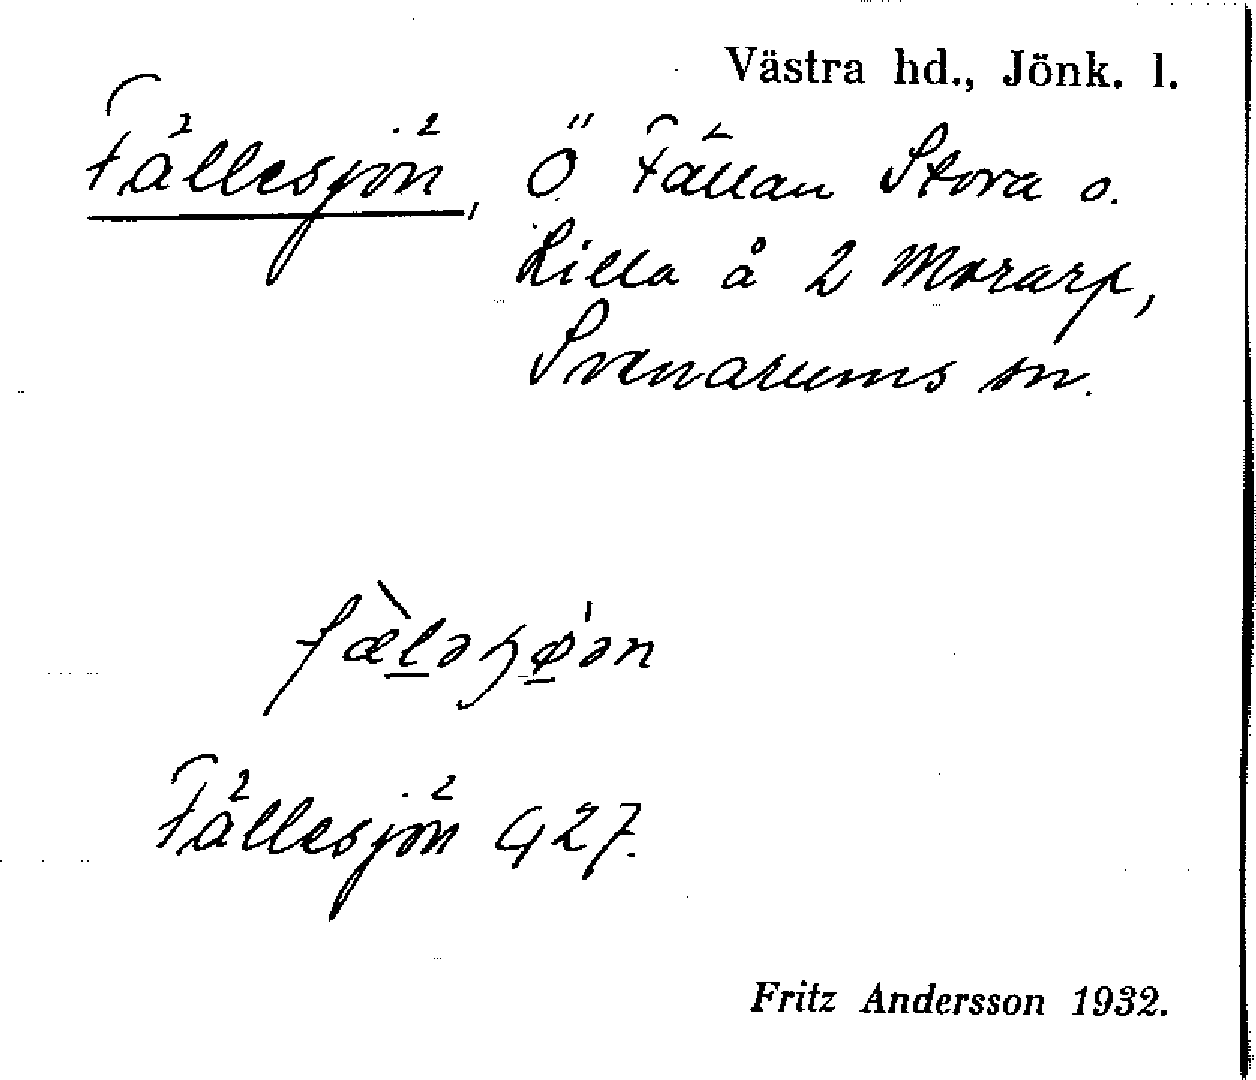 Västra hd., Jönk. l.
Fällesjön, Ö Fällan Stora o.
Lilla å 2 Morarp,
Svenarums sn.
Fällesjön G 27.
Fritz Andersson 1932.